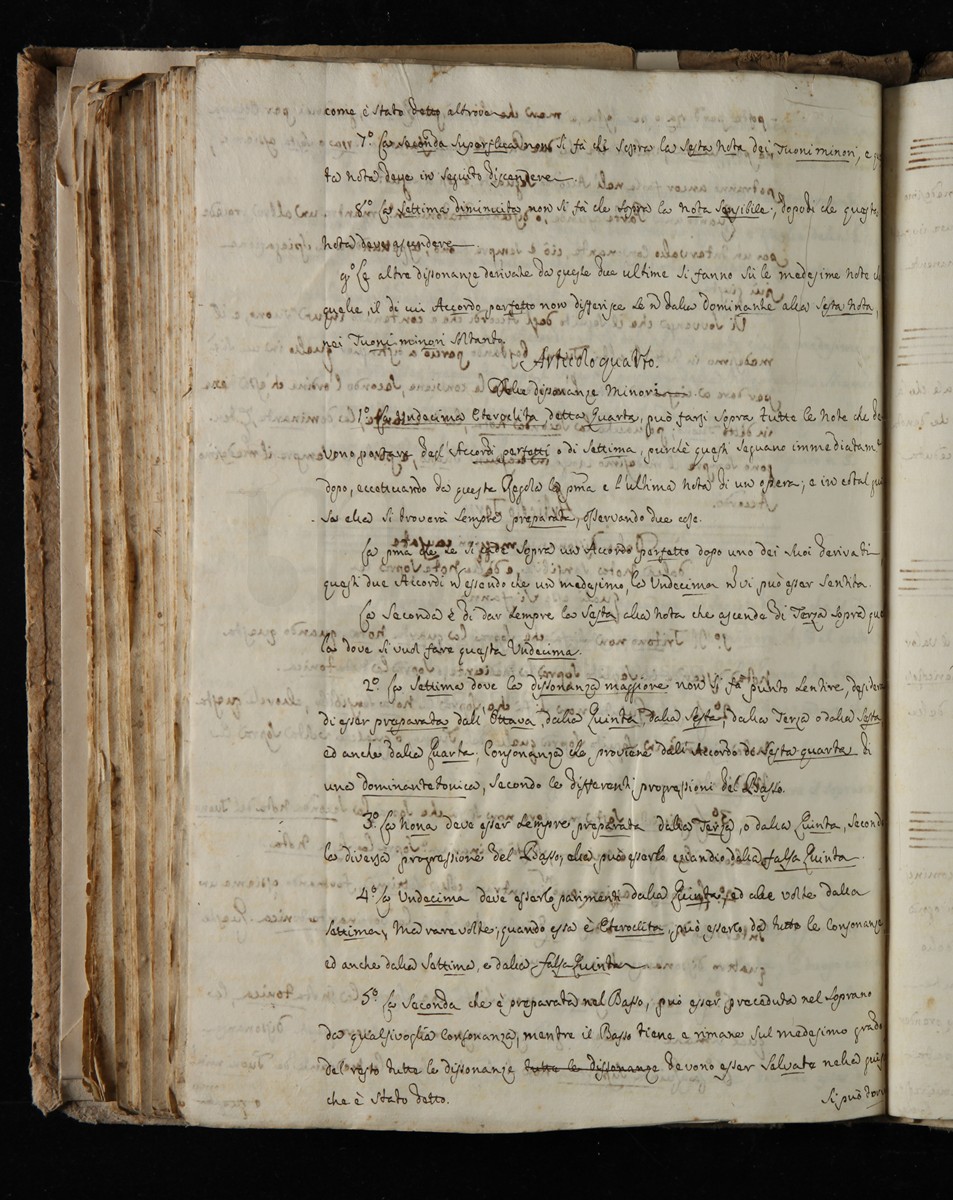 come è stato detto altrove
7.° La seconda superflua non si fà che sopra la sesta nota dei Tuoni minori, e
ta nota deve in seguito discendere
8.° La settima diminuita non si fà che sopra la nota sensibile, dopodi che questa
nota deve ascendere
9.° Le altre dissonanze derivate da queste due ultime si fanno sù le medesime note
quelle, il di cui Accordo perfetto non differisce se ñ dalla dominante alla sesta nota,
nei Tuoni minori soltanto.
Articolo quarto.
Delle dissonanze Minori
1.° La Undecima Eteroclita detta Quarta, può farsi sopra tutte le note che de
vono portare degl'Accordi perfetti o di settima, purchè questi seguano immediatam.e
dopo, eccettuando da questa Regola la pma e l'ultima nota di un opera; e in cotal
sa ella si troverà sempre preparata, osservando due cose.
La pma che se si fede sopra un Accordo perfetto dopo uno dei suoi derivati
questi due Accordi ñ essendo che un medesimo, la Undecima ñ vi può esser sentita.
La seconda è di dar sempre la sesta alla nota che ascende di Terza sopra quel
la dove si vuol fare questa Undecima.
2.° La settima dove la dissonanza maggiore non si fà punto sentire, desidera
di esser preparata dall'Ottava, dalla Quinta, dalla sesta, dalla Terza o dalla sesta
ed anche dalla Quarta; Consonanza che proviene dall'Accordo de sesta quarta di
una dominante tonica, secondo le differenti progressioni del Basso.
3.° La nona deve esser sempre preparata dalla Terza, o dalla Quinta, secondo
la diversa progressione del Basso; ella può esserlo eziandio dalla falsa Quinta.
4.° La Undecima deve esserlo parimenti dalla Quinta, ed alle volte dalla
settima, ma rare volte; quando essa è Eteroclita, può esserlo da tutte le consonanze
ed anche dalla settima, e dalla falsa Quinta
5.° La seconda che è preparata nel Basso, può esser preceduta nel soprano
da qualsivoglia consonanza, mentre il Basso tiene e rimane sul medesimo grado
del resto tutte le dissonanze tutte le dissonanze devono esser salvate nella guisa
che è stato detto.
si può dove